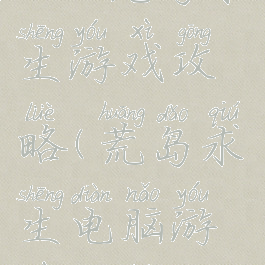 shēng yóu xì gōng
生游戏攻
lüè huāng dǎo qiú
略(荒岛求
shēng diàn nǎo yóu
生电脑游